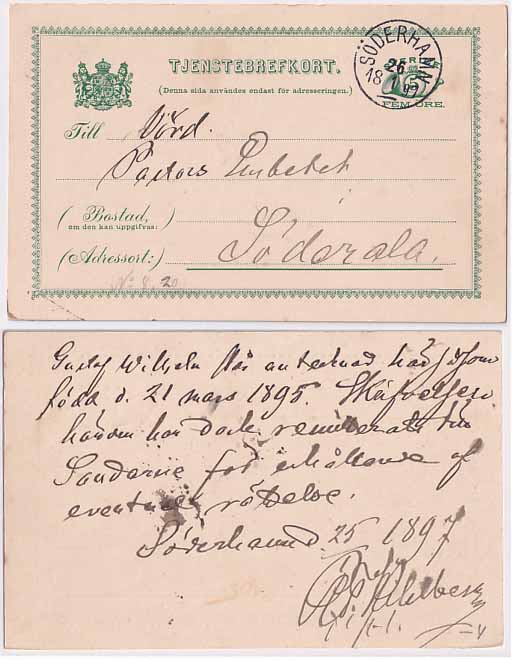 TJENSTEBREFKORT.
(Denna sida användes endast för adresseringen.)
SÖDERHAMN
26
18 97
FEM ÖRE.
Till Vörd.
Pastors Embetet
(Bostad,
om den kan uppgifvas:)
(Adressort:) Söderala.
No 8. 20
Gustaf Wilhelm står antecknad härst. som
född d. 21 mars 1895.
härom har dock
för erhållande af
eventuel rättelse.
Söderhamn d. 25 1897